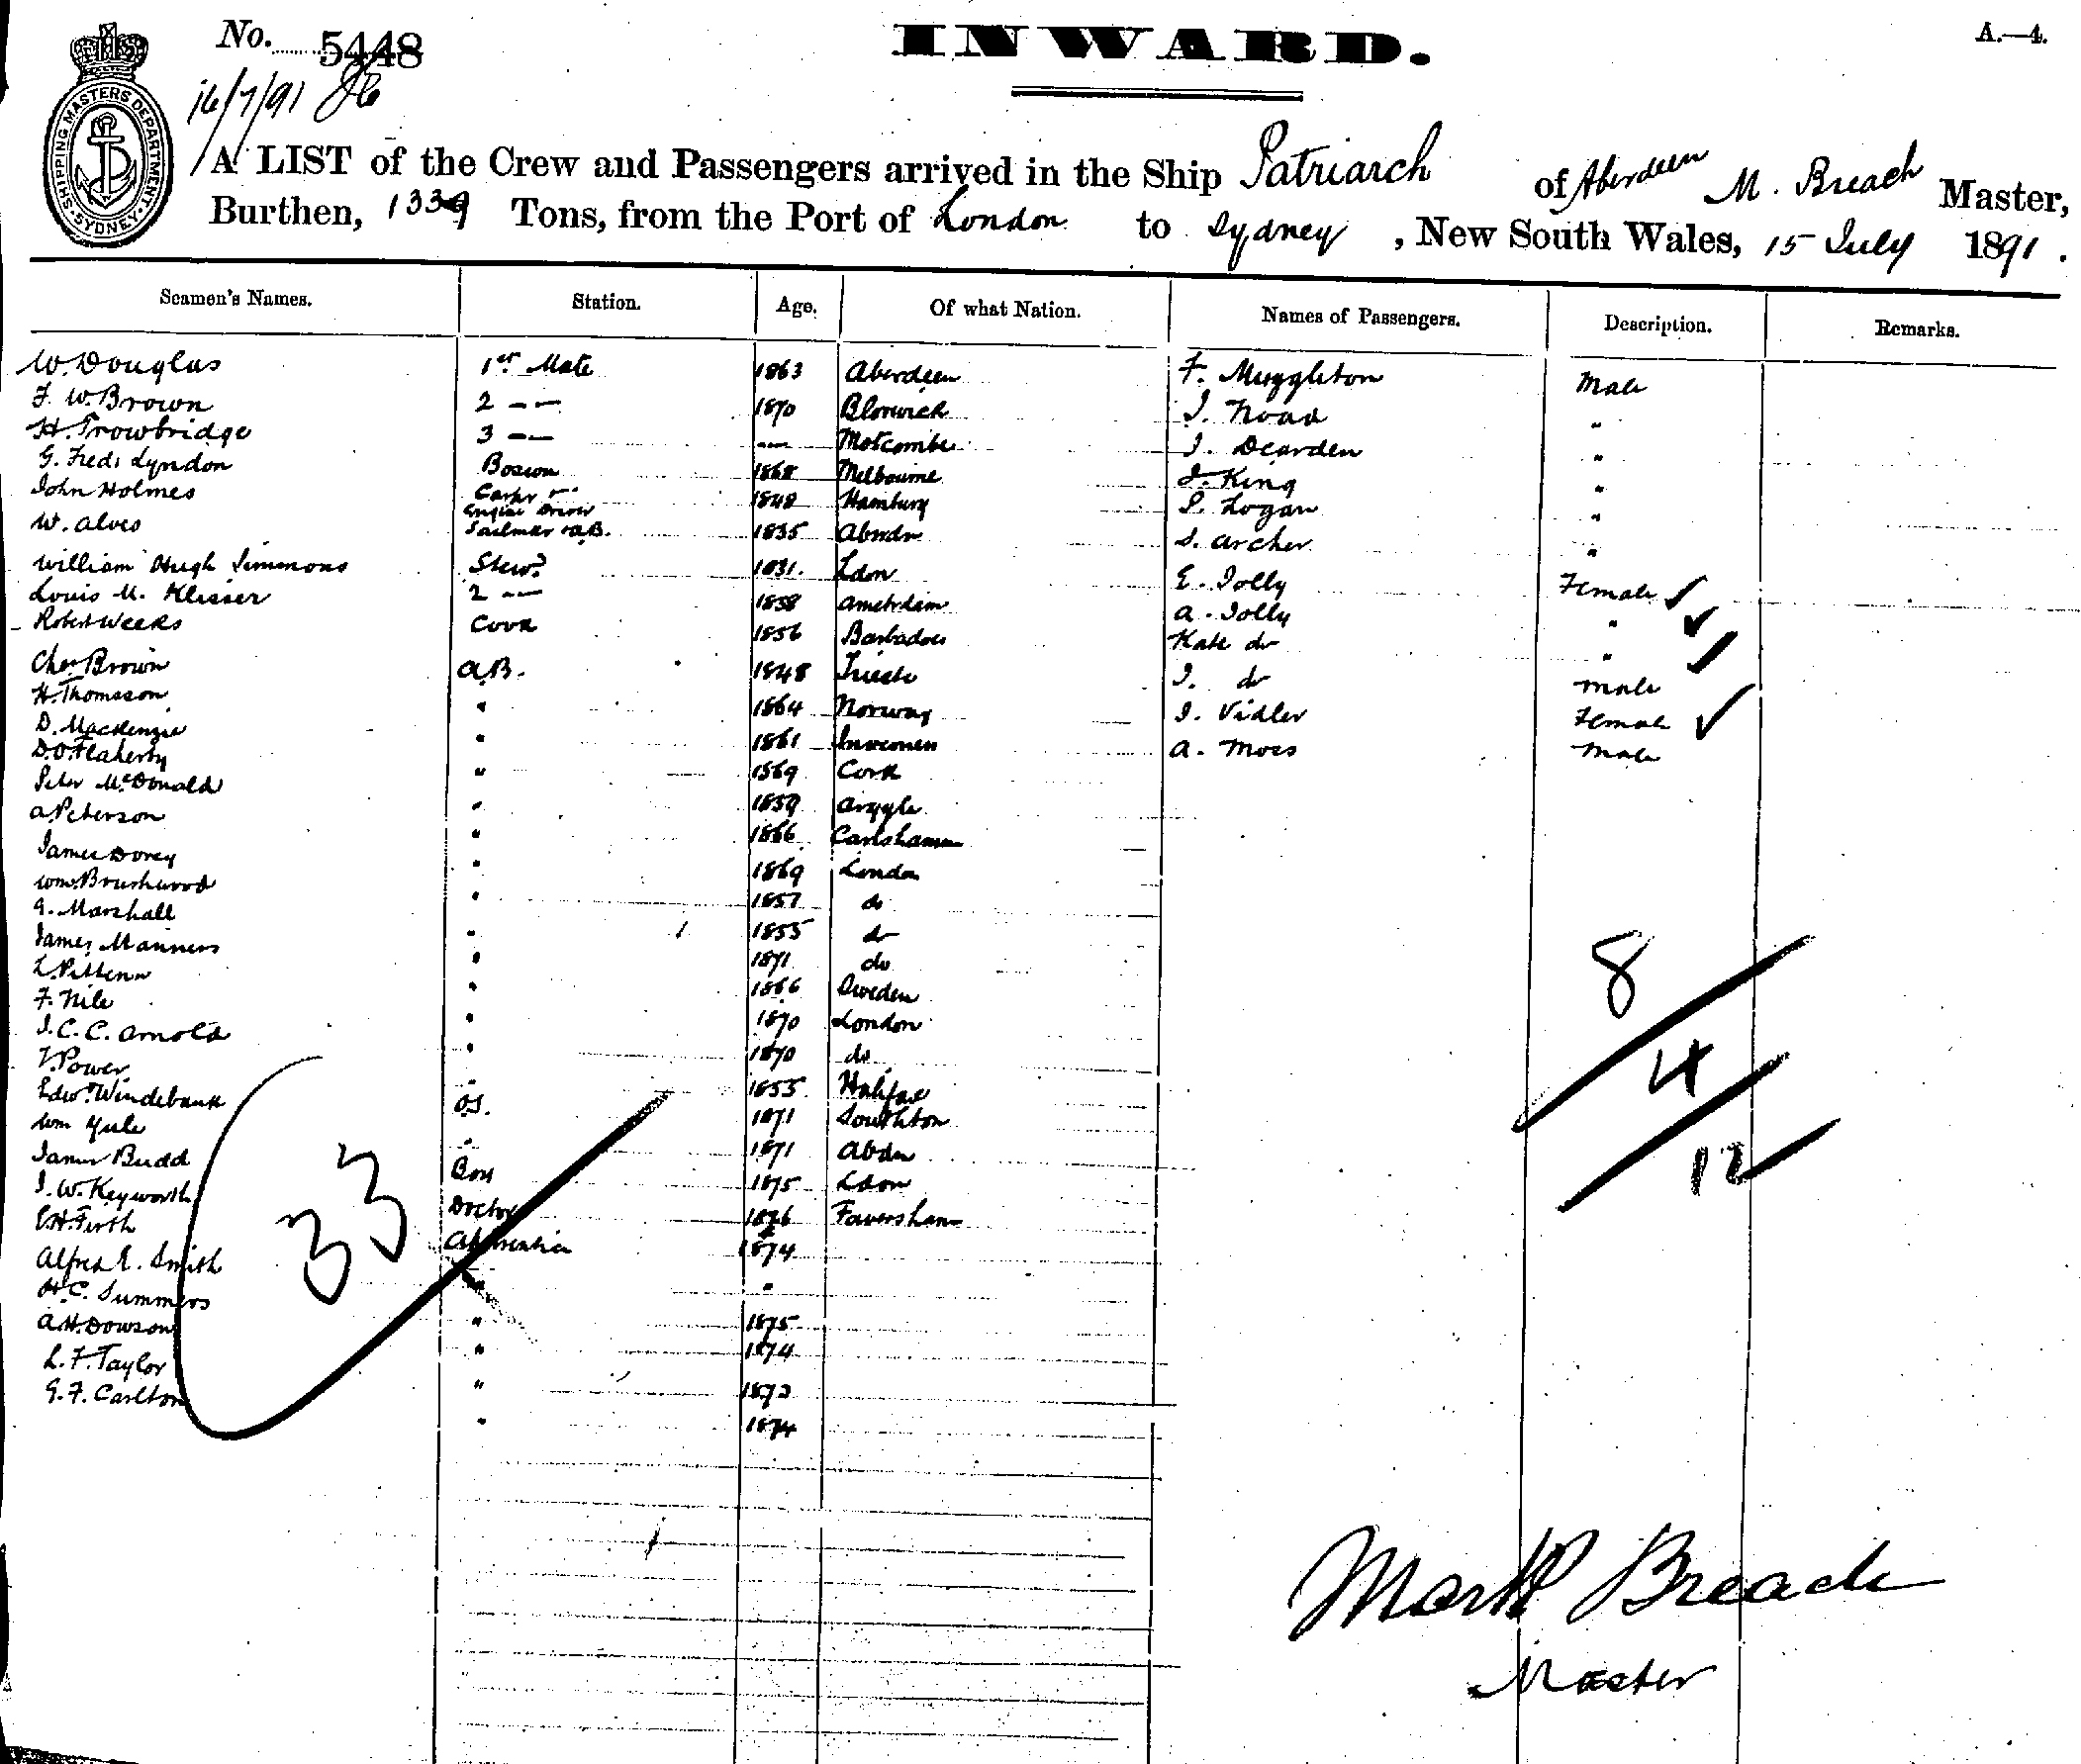 No. 5448
INWARD.
A.—4.
16/7/91
SHIPPING MASTERS DEPARTMENT. SYDNEY.
A LIST of the Crew and Passengers arrived in the Ship Patriarch of Aberdeen M. Breach Master,
Burthen, 1339 Tons, from the Port of London to Sydney, New South Wales, 15 July 1891.
Seamen's Names. Station. Age. Of what Nation. Names of Passengers. Description. Remarks.
W. Douglas 1st Mate 1863 Aberdeen F. Muggleton Male
F. W. Brown 2 —— 1870 Bloxwich J. Noad "
H. Trowbridge 3 —— — Motcombe J. Dearden "
G. Fredk Lyndon Bosun 1868 Melbourne J. King "
John Holmes Carpr Engine Driver 1848 Hamburg P. Logan "
W. Alves Sailmkr & A.B. 1835 Aberdn J. Archer "
William Hugh Simmons Stewd 1831. Ldon E. Jolly Female ✓
Louis M. Klisser 2 —— 1858 Amstrdam A. Jolly " ✓
Robert Weeks Cook 1856 Barbadoes Kate do " ✓
Chas Brown A.B. 1848 Trieste J. do Male
H. Thomsson " 1864 Norway J. Vidler Female ✓
D. Mackenzie " 1861 Inverness A. Moss Male
D. O'Flaherty " 1869 Cork
Peter McDonald " 1859 Argyle
A. Peterson " 1866 Carlshamn
James Dorey " 1869 London
Wm. Brushwood " 1857 do
G. Marshall " 1855 do
James Manners " 1871 do
L. " 1866 Sweden
F. Nile " 1870 London
J. C. C. Arnold " 1870 do
V. Power " 1855 Halifax
Edwd Windebank O.S. 1871 Southton
Wm Yule " 1871 Abdn
James Budd Boy 1875 Ldon
J. W. Keyworth Doctor 1826 Faversham
E. H. Firth Apprentice 1874
Alfred E. Smith " "
H. C. Summers " 1875
A. H. Dowson " 1874
L. F. Taylor " 1873
G. F. Carlton " 1874
33
8
4
12
Mark Breach
Master